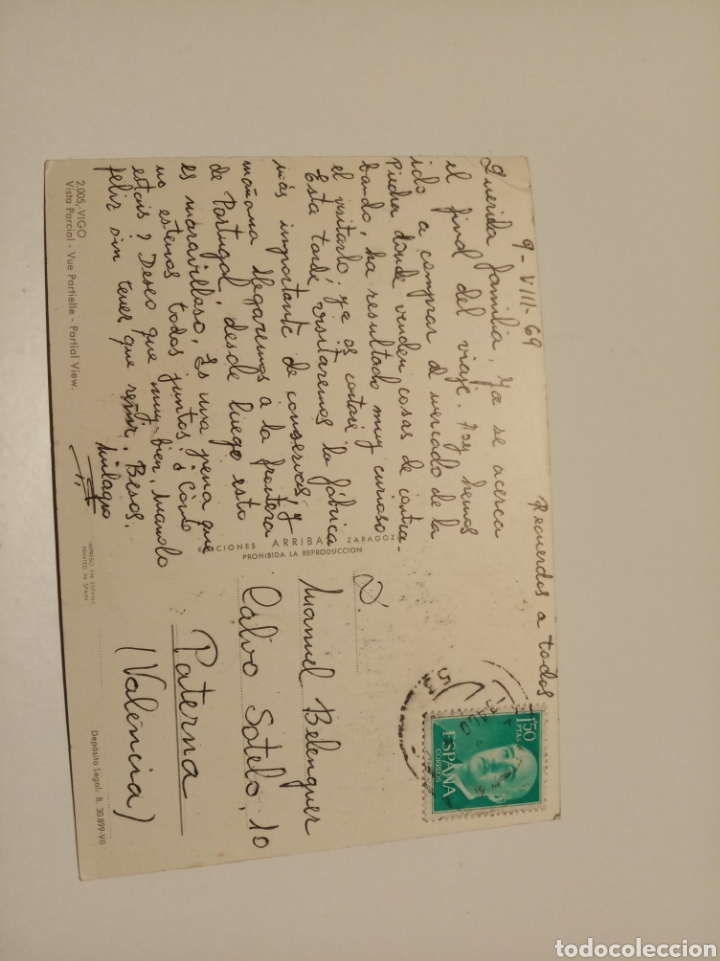 9-VIII-69
Recuerdos a todos
Querida familia, Ya se acerca
el final del viaje. Hoy hemos
ido a comprar al mercado de la
Piedra donde venden cosas de contra-
bando, ha resultado muy curioso
el visitarlo; ya os contaré.
Esta tarde visitaremos la fábrica
más importante de conservas, y
mañana llegaremos a la frontera
de Portugal, desde luego esto
es maravilloso, Es una pena que
no estemos todos juntos; ¿Cómo
estais? Deseo que muy bien, Manolo
feliz sin tener que reñir. Besos.
Milagro
2.005, VIGO
Vista Parcial - Vue Partielle - Partial View.
CIONES ARRIBA ZARAGOZA
PROHIBIDA LA REPRODUCCION
IMPRESO EN ESPAÑA
PRINTED IN SPAIN
D.
Manuel Belenguer
Calvo Sotelo, 10
Paterna
(Valéncia)
Depósito Legal: B. 30.899-VII
1'50
PTAS
ESPAÑA
CORREOS
todocoleccion